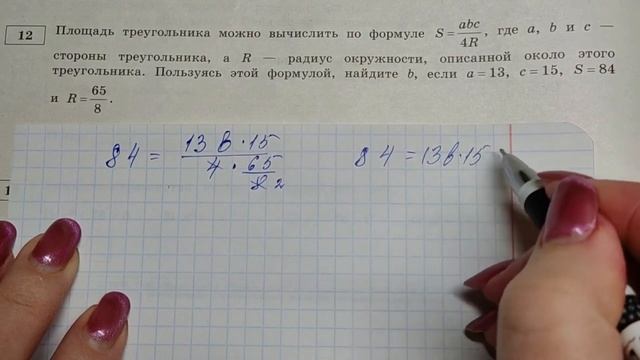 12 Площадь треугольника можно вычислить по формуле S = abc/4R, где a, b и c —
стороны треугольника, а R — радиус окружности, описанной около этого
треугольника. Пользуясь этой формулой, найдите b, если a = 13, c = 15, S = 84
и R = 65/8.
84 = 13 b · 15 / 4 · 65/8 2
84 = 13b · 15
1